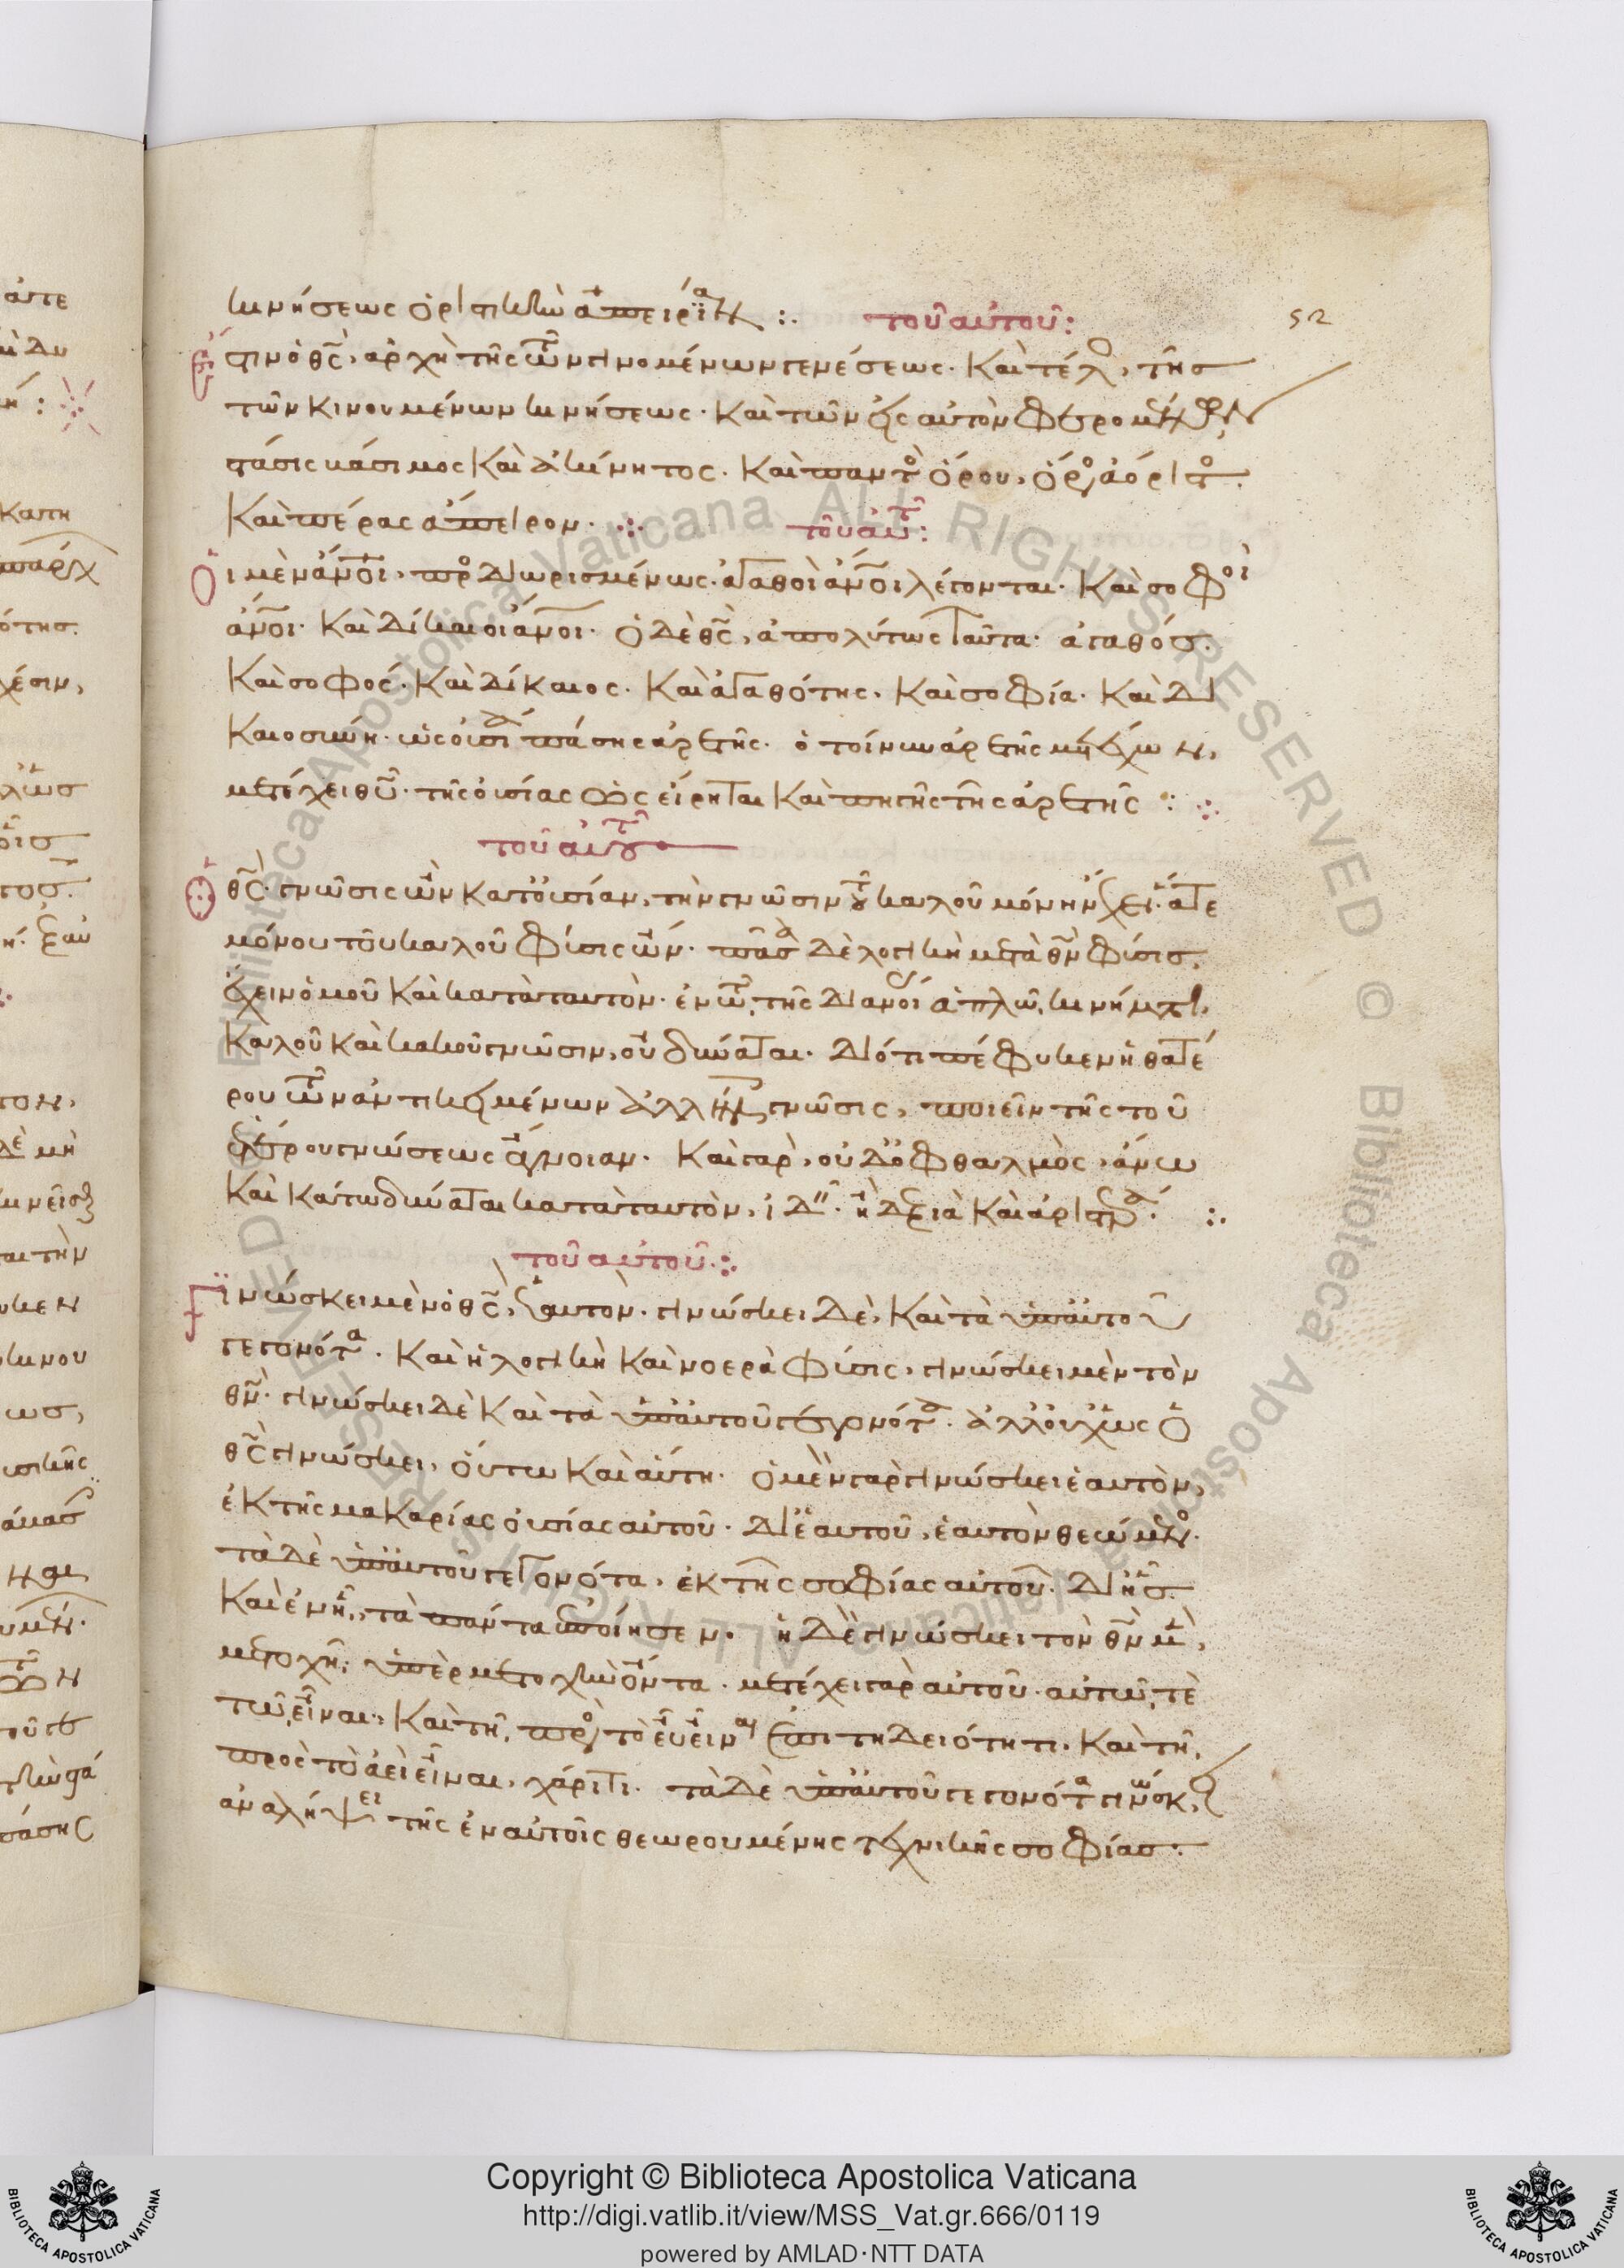 κινήσεως ὁριστικὴν ἀπειρίαν :. τοῦ αὐτοῦ :
52
Ἔστιν ὁ θς̃, ἀρχὴ τῆς τῶν γινομένων γενέσεως. Καὶ τέλος, τῆς
τῶν κινουμένων κινήσεως. Καὶ τῶν
στάσις βάσιμος καὶ ἀκίνητος. Καὶ παντὸς ὅρου, ὅρος ἀόριστος.
Καὶ πέρας ἄπειρον. :. τοῦ αὐτοῦ :
Οἱ μὲν ἄνοι, προσδιωρισμένως. ἀγαθοὶ ἄνοι λέγονται. Καὶ σοφοὶ
ἄνοι. Καὶ δίκαιοι ἄνοι. ὁ δὲ θς̃, ἀπολύτως ταῦτα. ἀγαθός.
Καὶ σοφός. Καὶ δίκαιος. Καὶ ἀγαθότης. Καὶ σοφία. Καὶ δι
καιοσύνη. ὡς οὐσία πάσης ἀρετῆς. ὁ τοίνυν ἀρετῆς μετέχων,
μετέχει θῦ. τῆς οὐσίας ὡς εἴρηται καὶ πηγῆς τῆς ἀρετῆς :. :.
τοῦ αὐτοῦ
Ὁ θς̃. γνῶσις ὢν κατ' οὐσίαν, τὴν γνῶσιν τοῦ καλοῦ μόνην ἔχει. ἅτε
μόνου τοῦ καλοῦ φύσις ὤν. πᾶσα δὲ λογικὴ μετὰ θν̃ φύσις,
ἔχειν ὁμοῦ καὶ κατὰ ταυτὸν. ἐν τῷ τῆς διανοίας ἁπλῷ κινήματι,
Καλοῦ καὶ κακοῦ γνῶσιν, οὐ δύναται. Διότι πέφυκεν ἡ θατέ
ρου τῶν ἀντικειμένων ἀλλήλοις γνῶσις, ποιεῖν τῆς τοῦ
ἑτέρου γνώσεως ἄγνοιαν. Καὶ γὰρ, οὐδ' ὀφθαλμὸς, ἄνω
καὶ κάτω δύναται κατὰ ταυτὸν, ἰδεῖν. ἢ δεξιὰ καὶ ἀριστερά. :.
τοῦ αὐτοῦ :.
Γινώσκει μὲν ὁ θς̃, ἑαυτόν. γινώσκει δὲ, Καὶ τὰ ὑπ' αὐτοῦ
γεγονότα. Καὶ ἡ λογικὴ καὶ νοερὰ φύσις, γινώσκει μὲν τὸν
θν̃. γινώσκει δὲ Καὶ τὰ ὑπ' αὐτοῦ γεγονότα. ἀλλ' οὐχ ὡς ὁ
θς̃ γινώσκει, οὕτω Καὶ αὕτη. ὁ μὲν γὰρ γινώσκει ἑαυτὸν,
ἐκ τῆς μακαρίας οὐσίας αὐτοῦ. Δι' ἑαυτοῦ, ἑαυτὸν θεώμενος.
τὰ δὲ ὑπ' αὐτοῦ γεγονότα, ἐκ τῆς σοφίας αὐτοῦ. Δι' ἧς
Καὶ ἐν ᾗ, τὰ πάντα ἐποίησεν. ἡ δὲ γινώσκει τὸν θν̃ μὲν,
μετοχῇ, ὑπὲρ μετοχὴν ὄντα. μετέχει γὰρ αὐτοῦ. αὐτῷ, τὲ
τῷ εἶναι, Καὶ τῇ πρὸς τὸ εὖ εἶναι ἐπιτηδειότητι. Καὶ τῇ
πρὸς τὸ ἀεὶ εἶναι, χάριτι. τὰ δὲ ὑπ' αὐτοῦ γεγονότα γινώσκει,
ἀναλήψει τῆς ἐν αὐτοῖς θεωρουμένης τεχνικῆς σοφίας.
Copyright © Biblioteca Apostolica Vaticana
http://digi.vatlib.it/view/MSS_Vat.gr.666/0119
powered by AMLAD·NTT DATA
BIBLIOTECA APOSTOLICA VATICANA
BIBLIOTECA APOSTOLICA VATICANA